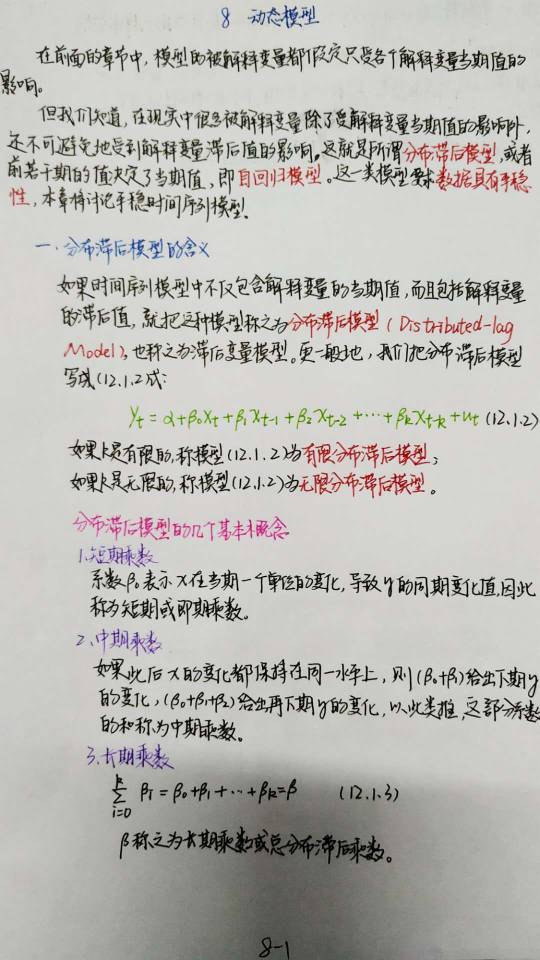 8 动态模型
在前面的章节中,模型的被解释变量都假定只受各个解释变量当期值的
影响。
但我们知道,在现实中很多被解释变量除了受解释变量当期值的影响外,
还不可避免地受到解释变量滞后值的影响。这就是所谓分布滞后模型,或者
前若干期的值决定了当期值,即自回归模型。这一类模型要求数据具有平稳
性,本章将讨论平稳时间序列模型.
一.分布滞后模型的含义
如果时间序列模型中不仅包含解释变量的当期值,而且包括解释变量
的滞后值,就把这种模型称之为分布滞后模型(Distributed-lag
Model),也称之为滞后变量模型。更一般地,我们把分布滞后模型
写成(12.1.2)式:
yt = α+β0xt+β1xt-1+β2xt-2+⋯+βkxt-k+ut (12.1.2)
如果k是有限的,称模型(12.1.2)为有限分布滞后模型;
如果k是无限的,称模型(12.1.2)为无限分布滞后模型。
分布滞后模型的几个基本概念
1.短期乘数
系数β0表示x在当期一个单位的变化,导致y的同期变化值,因此
称为短期或即期乘数。
2.中期乘数
如果此后x的变化都保持在同一水平上,则(β0+β1)给出下期y
的变化,(β0+β1+β2)给出再下期y的变化,以此类推,这部分系数
的和称为中期乘数。
3.长期乘数
k
∑ βi = β0+β1+⋯+βk=β (12.1.3)
i=0
β称之为长期乘数或总分布滞后乘数。
8-1